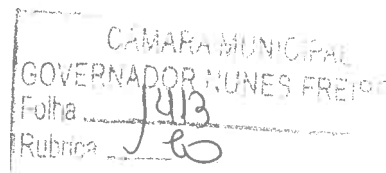 CÂMARA MUNICIPAL
GOVERNADOR NUNES FREIRE
Folha 413
Rubrica